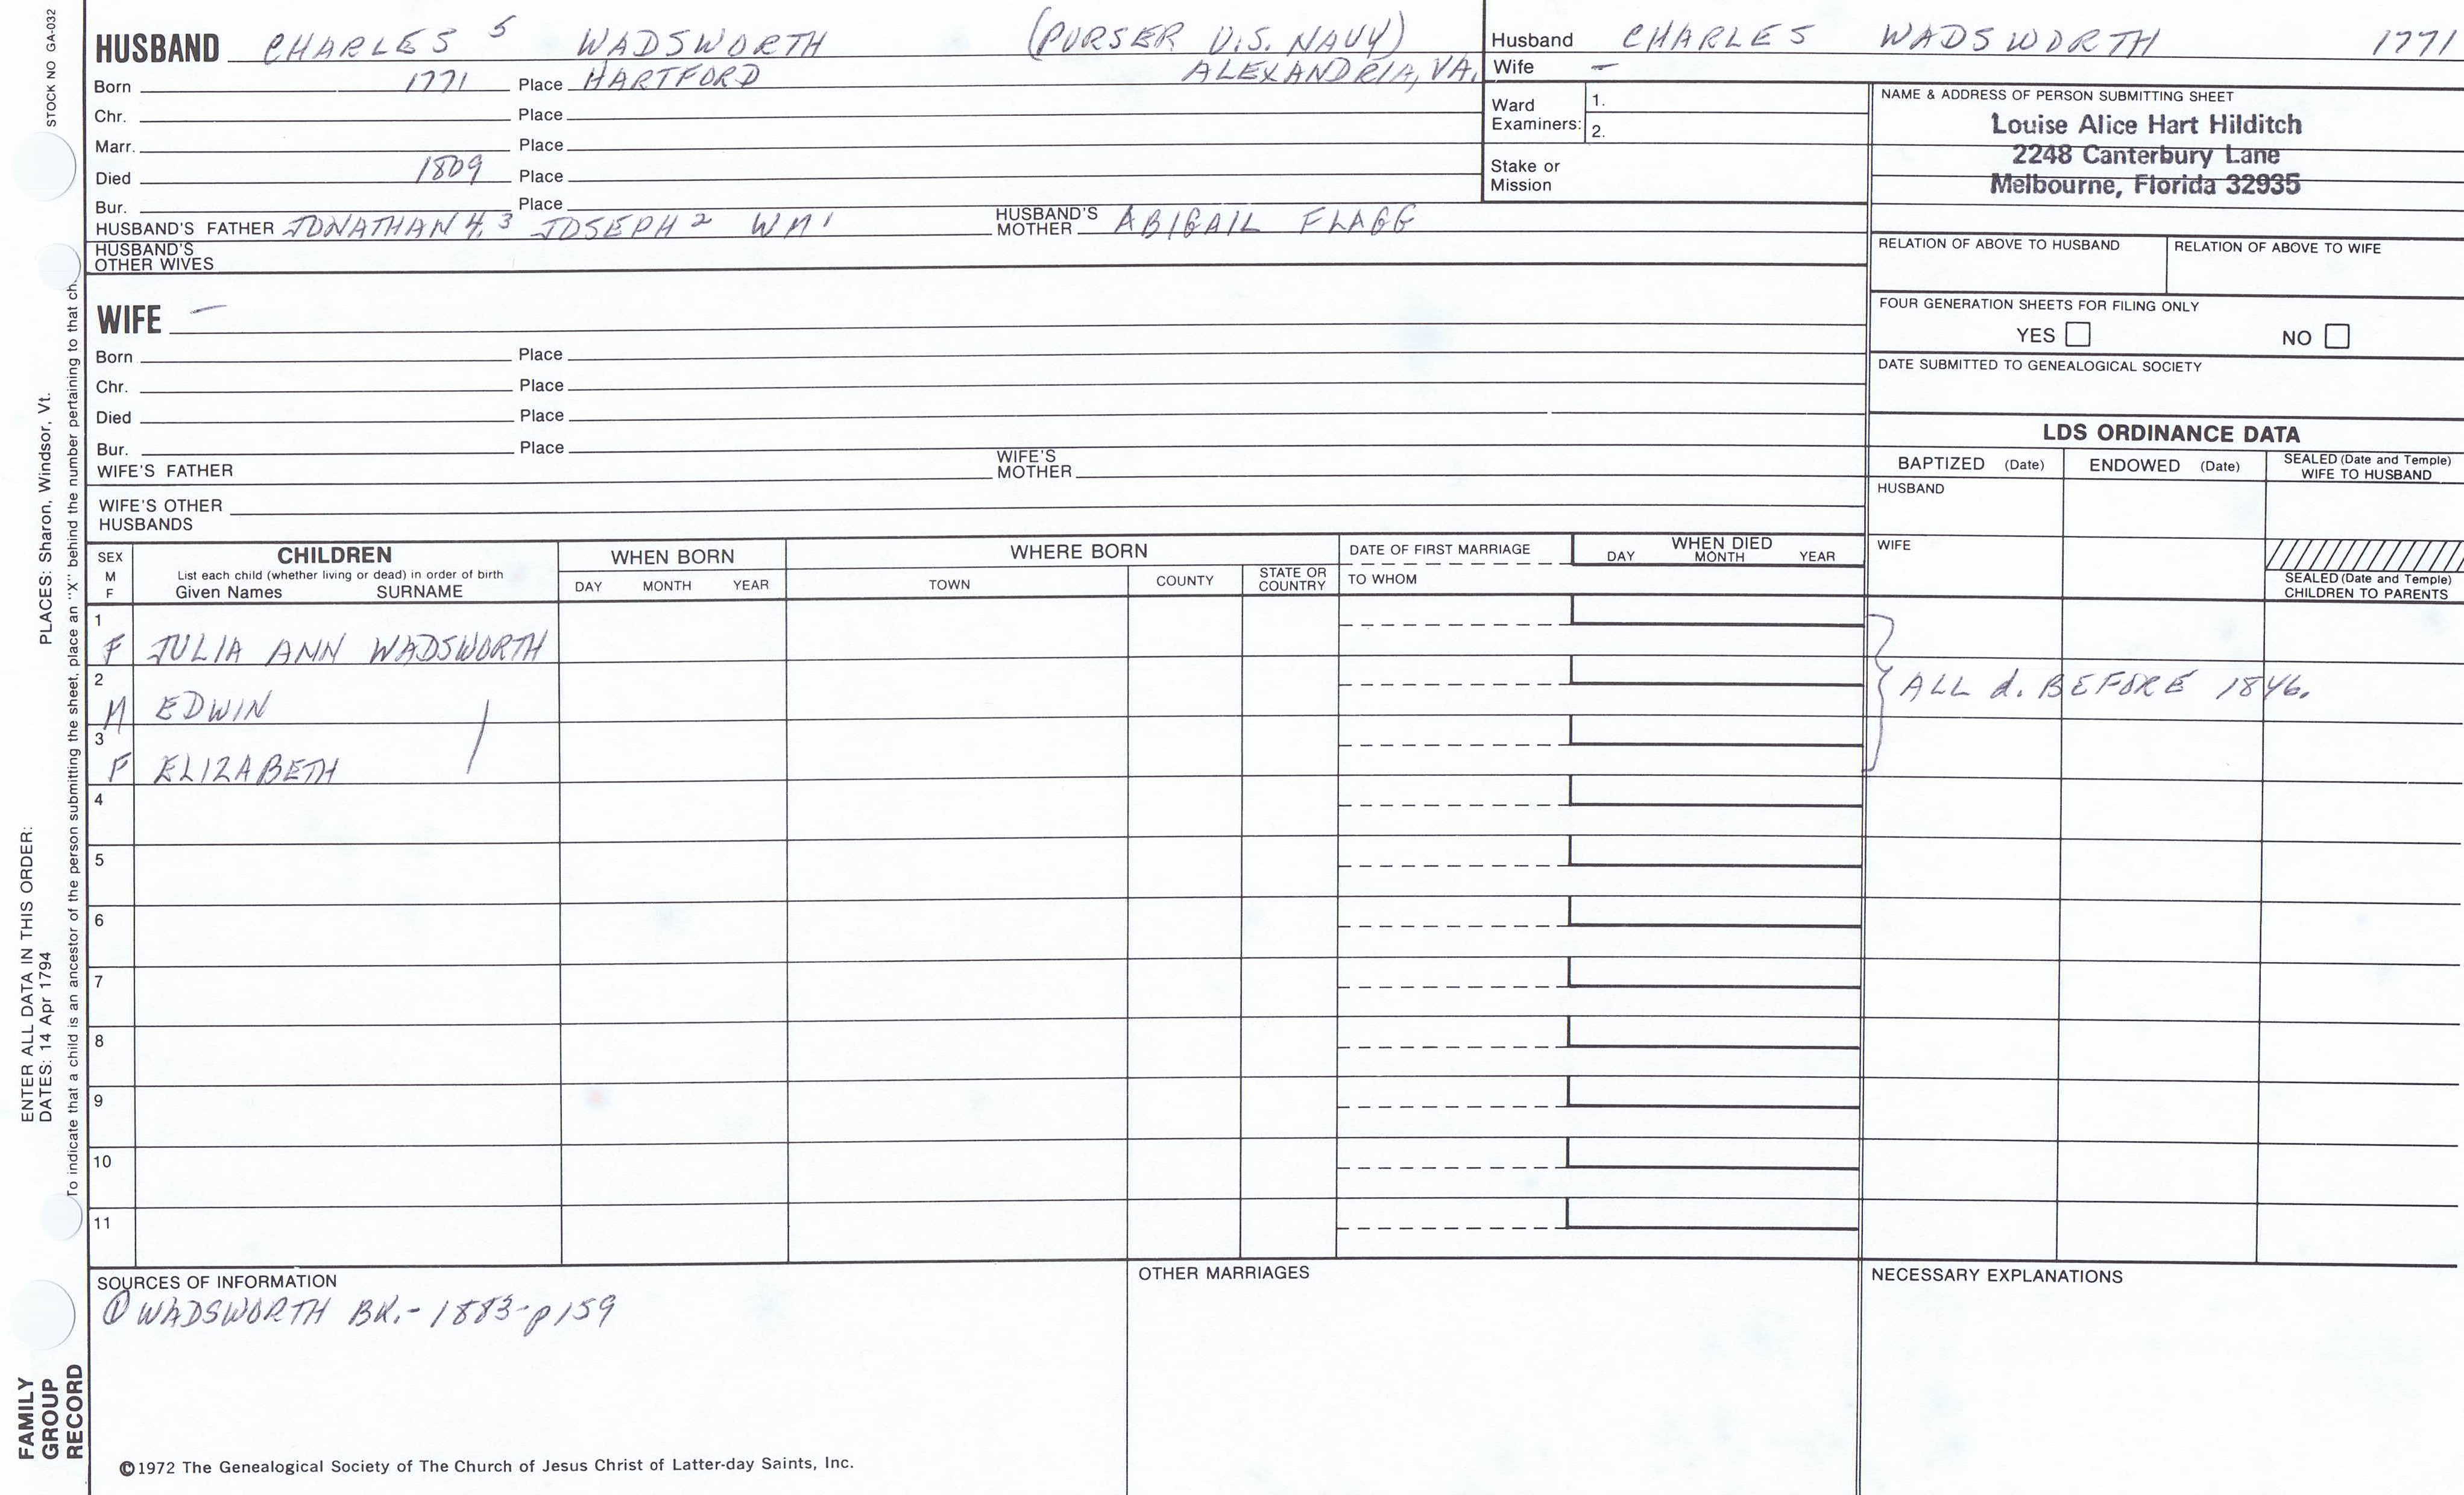 STOCK NO GA-032
HUSBAND CHARLES 5 WADSWORTH (PURSER U.S. NAVY)
Born 1771 Place HARTFORD ALEXANDRIA, VA.
Chr. Place
Marr. Place
Died 1809 Place
Bur. Place
HUSBAND'S FATHER JONATHAN 4, 3 JOSEPH 2 WM 1 HUSBAND'S MOTHER ABIGAIL FLAGG
HUSBAND'S
OTHER WIVES
Husband CHARLES WADSWORTH 1771
Wife –
Ward
Examiners:
1.
2.
Stake or
Mission
NAME & ADDRESS OF PERSON SUBMITTING SHEET
Louise Alice Hart Hilditch
2248 Canterbury Lane
Melbourne, Florida 32935
RELATION OF ABOVE TO HUSBAND RELATION OF ABOVE TO WIFE
FOUR GENERATION SHEETS FOR FILING ONLY
YES NO
DATE SUBMITTED TO GENEALOGICAL SOCIETY
WIFE –
Born Place
Chr. Place
Died Place
Bur. Place
WIFE'S FATHER WIFE'S MOTHER
WIFE'S OTHER
HUSBANDS
LDS ORDINANCE DATA
BAPTIZED (Date) ENDOWED (Date) SEALED (Date and Temple) WIFE TO HUSBAND
HUSBAND
WIFE
SEALED (Date and Temple)
CHILDREN TO PARENTS
SEX
M
F
CHILDREN
List each child (whether living or dead) in order of birth
Given Names SURNAME
WHEN BORN
DAY MONTH YEAR
WHERE BORN
TOWN COUNTY STATE OR COUNTRY
DATE OF FIRST MARRIAGE
TO WHOM
WHEN DIED
DAY MONTH YEAR
1
F JULIA ANN WADSWORTH
2
M EDWIN
3
F ELIZABETH
ALL d. BEFORE 1846.
4
5
6
7
8
9
10
11
SOURCES OF INFORMATION
① WADSWORTH BK.- 1883- p 159
OTHER MARRIAGES
NECESSARY EXPLANATIONS
©1972 The Genealogical Society of The Church of Jesus Christ of Latter-day Saints, Inc.
FAMILY
GROUP
RECORD
ENTER ALL DATA IN THIS ORDER:
DATES: 14 Apr 1794 PLACES: Sharon, Windsor, Vt.
To indicate that a child is an ancestor of the person submitting the sheet, place an "X" behind the number pertaining to that ch